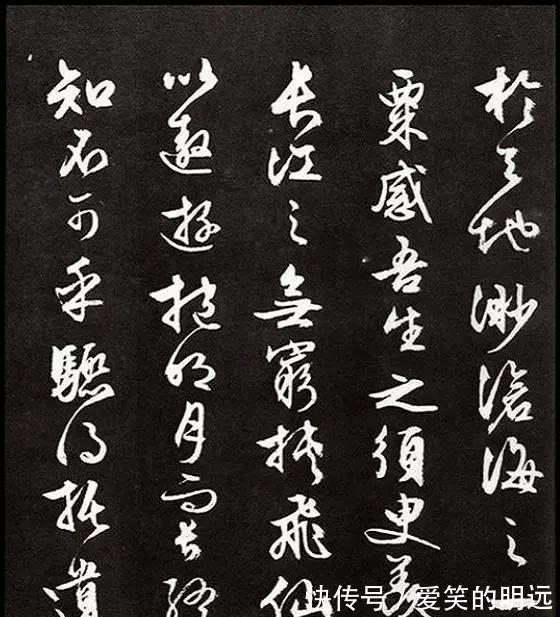 於天地渺滄海之
粟感吾生之須臾羨
長江之無窮挾飛仙
以遨遊抱明月而長終
知不可乎驟得托遺
快传号/爱笑的明远